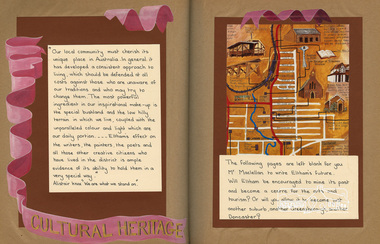 "Our local community must cherish its
unique place in Australia. In general it
has developed a consistent approach to
living, which should be defended at all
costs against those who are unaware of
our traditions and who may try to
change them. The most powerful
ingredient in our inspirational make-up is
the special bushland and the low hilly
terrain in which we live, coupled with the
unparalleled colour and light which are
our daily portion.... Eltham's effect on
the writers, the painters, the poets and
all those other creative citizens who
have lived in the district is ample
evidence of its ability to hold them in a
very special way."
Alistair Knox "We are what we stand on"
CULTURAL HERITAGE
The following pages are left blank for you
Mr Maclellan to write Eltham's future.
Will Eltham be encouraged to mind its past
and become a centre for the arts and
tourism? Or will you allow it to become
another suburb, another Greensborough,
Doncaster?